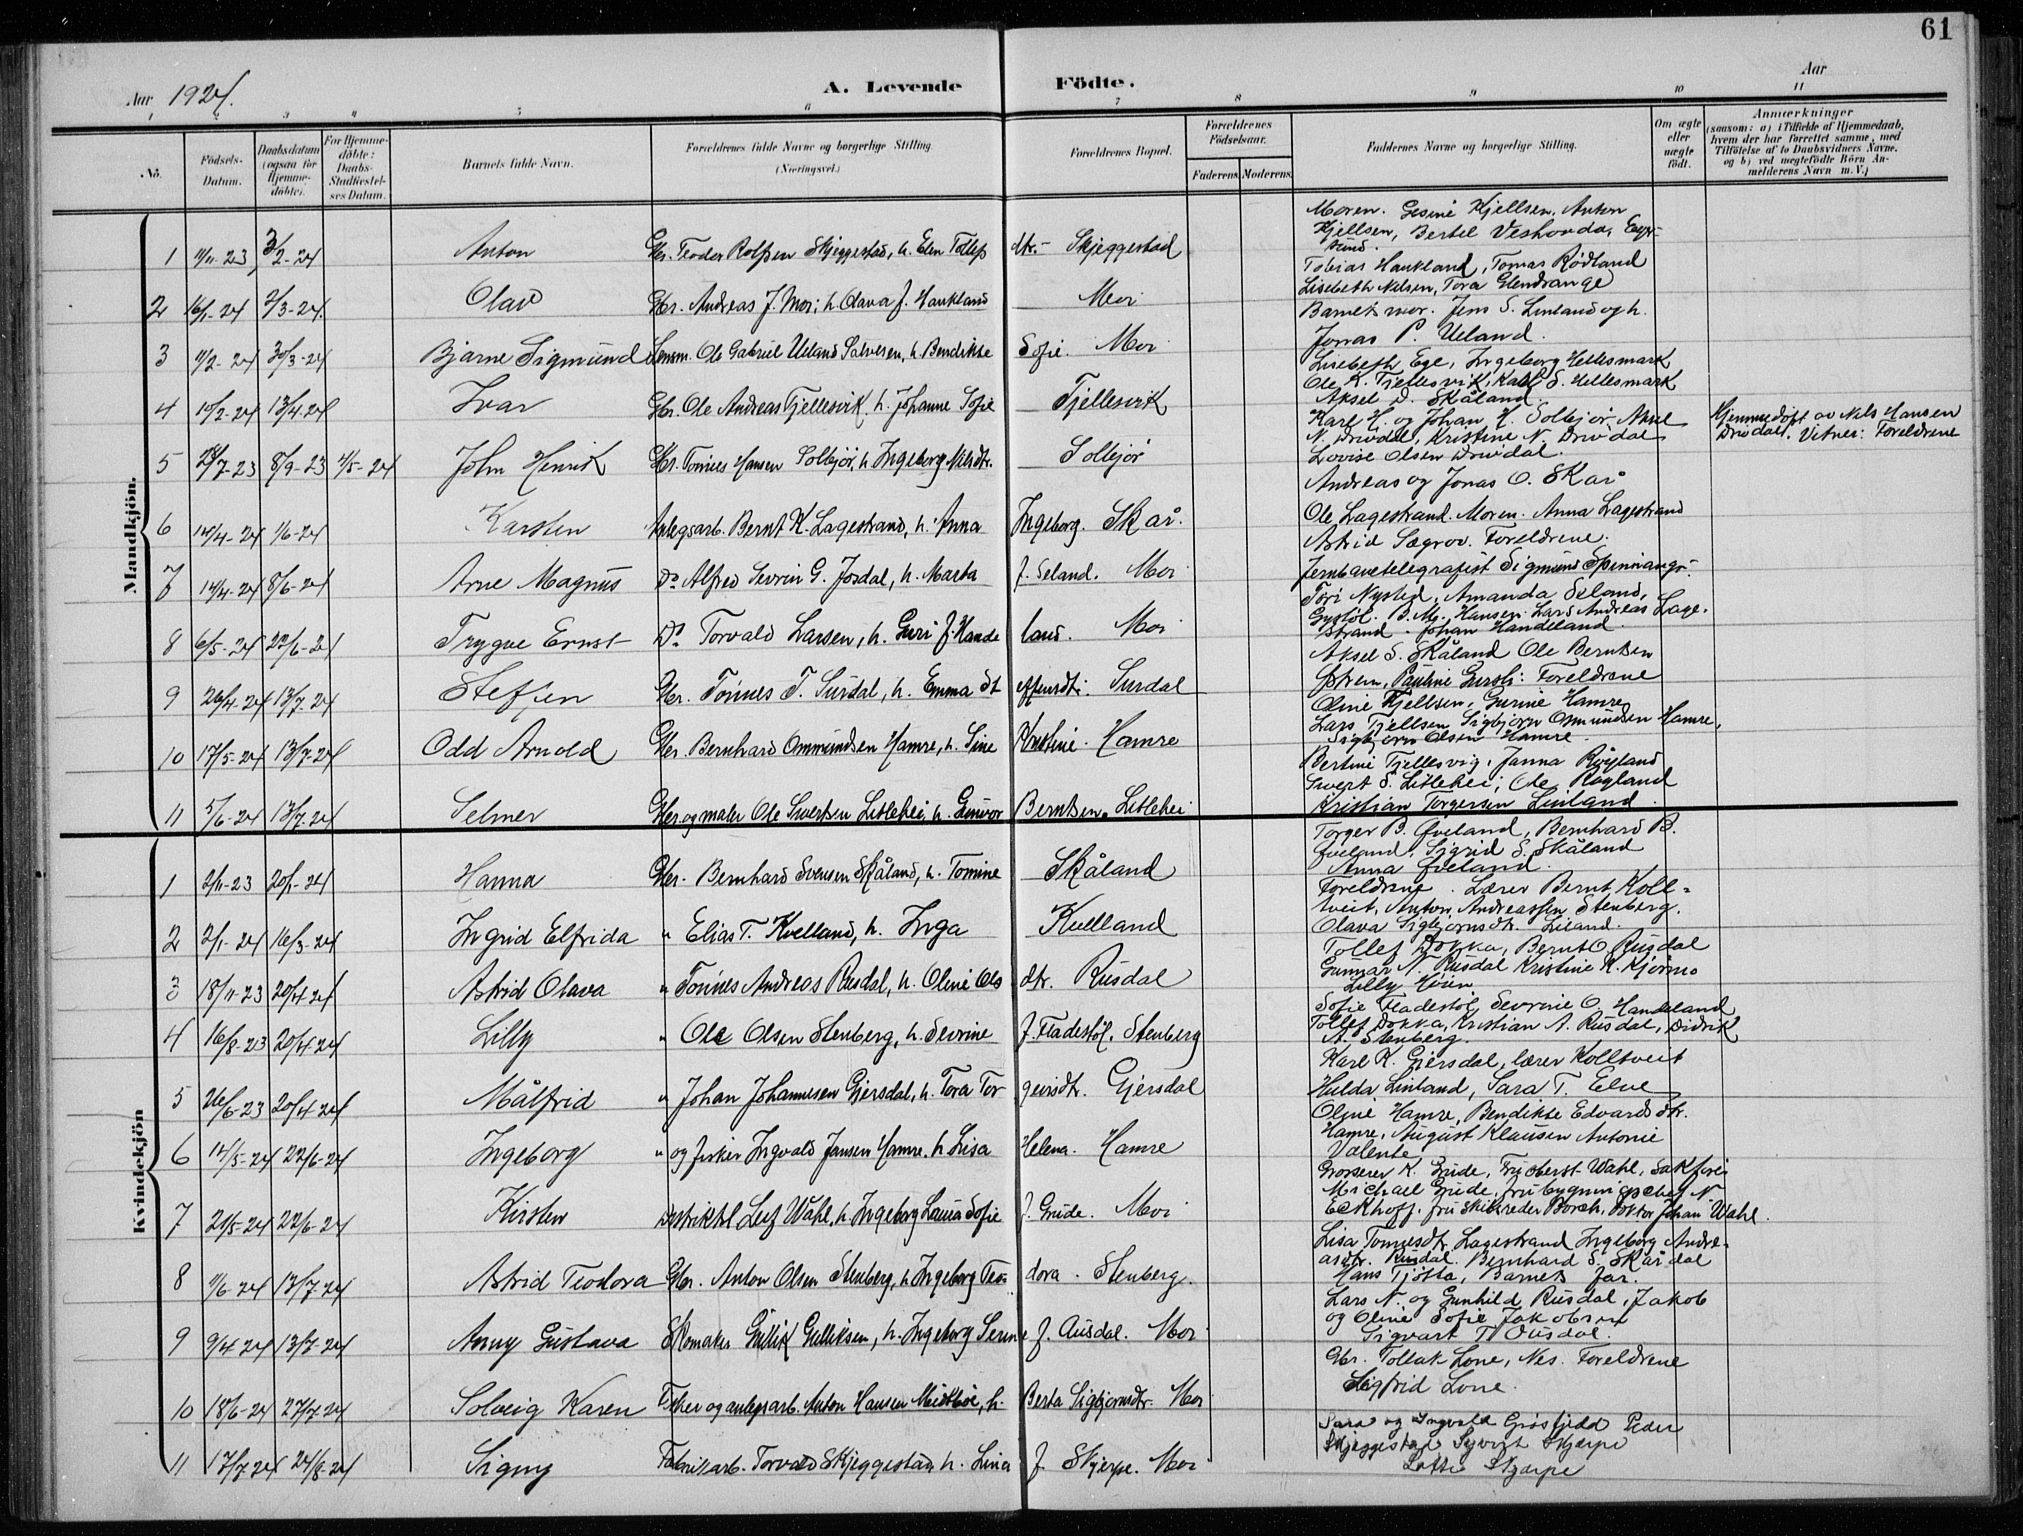 61
Aar 1924.
A. Levende Födte.
Aar
1 2 3 4 5 6 7 8 9 10 11
No.
Födsels-Datum.
Daabsdatum (ogsaa for Hjemme-döbte).
For Hjemme-döbte: Daabs-Stadfæstel-ses Datum.
Barnets fulde Navn.
Forældrenes fulde Navne og borgerlige Stilling.
(Næringsvei.)
Forældrenes Bopæl.
Forældrenes Födselsaar.
Faderens. Moderens.
Faddernes Navne og borgerlige Stilling.
Om ægte eller uægte födt.
Anmærkninger
(saasom: a) i Tilfælde af Hjemmedaab, hvem der har forrettet samme, med Tilföielse af to Daabsvidners Navne. og b) ved uægtefödte Börn An-melderens Navn m. V.)
Mandkjön.
1 11/11-23 3/2-24 Anton Gbr. Teodor Rolfsen Skjeggestad, h. Elen Tollefs dtr.- Skjeggestad
Moren. Gesine Kjellsen, Anton
Kjellsen, Bertel Veshovda, Eger-
sund.
2 16/1-24 2/3-24. Olav Gbr. Andreas J. Moi, h. Olava f. Haukland Moi
Tobias Haukland, Tomas Rødland
Lisebeth Nilsen, Tora Glendrange
3 11/2-24 30/3-24 Bjarne Sigmund Lensm. Ole Gabriel Ueland Salvesen, h. Bendikte Sofie. Moi
Barnets mor. Jens S. Linland og h.
Jonas P. Ueland.
4 10/2-24 13/4-24 Ivar Gbr. Ole Andreas Tjellesvik, h. Johanne Sofie Tjellesvik
Lisebeth Ege, Ingeborg Hellesmark
Ole K. Tjellesvik, Karl S. Hellesmark
Aksel D. Skåland.
5 28/7-23 8/9-23 4/5-24 John Henrik Gbr. Tønnes Hansen Solbjør, h. Ingeborg Nilsdtr. Solbjør
Karl H. og Johan H. Solbjør, Aksel
N. Drivdal, Kristine N. Drivdal
Lovise Olsen Drivdal.
Hjemmedøpt av Nils Hansen
Drivdal. Vitner: Foreldrene
6 14/4-24 1/6-24 Karsten Anlegsarb. Bernt K. Lagestrand, h. Anna Ingeborg. Skår.
Andreas og Jonas O. Skår
Ole Lagestrand. Moren. Anna Lagestrand
7 14/4-24 8/6-24 Arne Magnus Do Alfred Sevrin G. Josdal, h. Marta f. Seland. Moi
Astrid Sægrov. Foreldrene.
Jernbanetelegrafist Sigmund Spinnangr
8 6/5-24 22/6-24 Trygve Ernst Do Torvald Larsen, h. Guri f. Hande land. Moi
Tori Nysted, Amanda Seland,
Gystøl. B. Mj. Hansen. Lars Andreas Lage-
strand. Johan Handeland.
9 26/4-24 13/7-24 Steffen Gbr. Tønnes T. Surdal, h. Emma St effensdtr. Surdal
Aksel S. Skåland Ole Berntsen
Østrem, Pauline Gursli: Foreldrene
10 17/5-24 13/7-24 Odd Arnold Gbr. Bernhard Ommundsen Hamre, h. Sine Kristine. Hamre
Oline Kjellsen, Gurine Hamre
Lars Tjellsen, Sigbjørn Omundsen Hamre,
Sigbjørn Olsen Hamre.
11 5/6-24 13/7-24 Selmer Gbr. og maler Ole Sivertsen Litlehei, h. Gunvor Berntsen. Litlehei
Bertine Tjellesvig, Janna Røyland
Sivert S. Litlehei, Ole Røyland
Kristian Torgersen Linland.
Kvindekjön
1 2/11-23 20/1-24 Hanna Gbr. Bernhard Svensen Skåland, h. Tomine Skåland
Torger B. Øveland, Bernhard B.
Øveland, Sigrid S. Skåland
Anna Øveland.
2 2/1-24 16/3-24 Ingrid Elfrida " Elias T. Kvelland, h. Inga Kvelland
Foreldrene. Lærer Bernt Koll-
tveit, Anton Andreassen Stenberg.
Olava Sigbjørnsdtr. Liland.
3 18/11-23 20/4-24 Astrid Olava " Tønnes Andreas Rusdal, h. Oline Ols dtr. Rusdal
Tollef Dokka, Bernt O Rusdal
Gunnar N. Rusdal Kristine K. Kjørmo
Lilly
4 16/8-23 20/4-24 Lilly " Ole Olsen Stenberg, h. Sevrine f. Fladestøl. Stenberg
Sofie Fladestøl, Sevrine O. Handeland
Tollef Dokka, Kristian A. Rusdal, Didrik
A. Stenberg.
5 26/6-23 20/4-24 Målfrid " Johan Johannesen Gjersdal, h. Tora Tor geirsdtr. Gjersdal
Karl K. Gjersdal, lærer Kolltveit
Hulda Linland, Sara T. Elve
6 14/5-24 22/6-24 Ingeborg " og fisker Ingvald Jansen Hamre. h. Lisa Helena. Hamre
Oline Hamre, Bendikte Edvardsdtr.
Hamre, August Klausen Antonie
Valente
7 21/5-24 22/6-24 Kirsten Distriktsl. Leif Wahl, h. Ingeborg Laura Sofie f. Grude. Moi
Grosserer K. Grude, Fru oberst Wahl, Sakfører
Michael Grude, fru bygningschef N.
Eckhoff. fru skibsreder Borch, Doktor Johan Wahl.
8 1/6-24 13/7-24 Astrid Teodora Gbr. Anton Olsen Stenberg, h. Ingeborg Teo- dora. Stenberg.
Lisa Tønnesdtr. Lagestrand Ingeborg Andre-
asdtr. Rusdal. Bernhard S. Skårdal
Hans Tjøtta, Barnets far.
9 9/4-24 13/7-24 Anny Gustava Skomaker Gullik Gulliksen, h. Ingeborg Serine f. Ausdal. Moi
Lars N. og Gunhild Rusdal, Jakob
og Oline Sofie Jakobsen
Sigvart T. Ousdal.
10 18/6-24 27/7-24 Solveig Karen Fisker og anlegsarb. Anton Hansen Midtbøe, h. Berta Sigbjørnsdtr. Moi
Gbr. Tollak Lone, Nes. Foreldrene
Sigfrid Lone.
11 17/7-24 24/8-24 Signy Fabrikarb. Torvald Skjeggestad, h. Lina f. Skjerpe. Moi
Sara og Ingvald Grøsfjeld Peder
Skjeggestad Syvert Skjerpe
Lotte Skjerpe